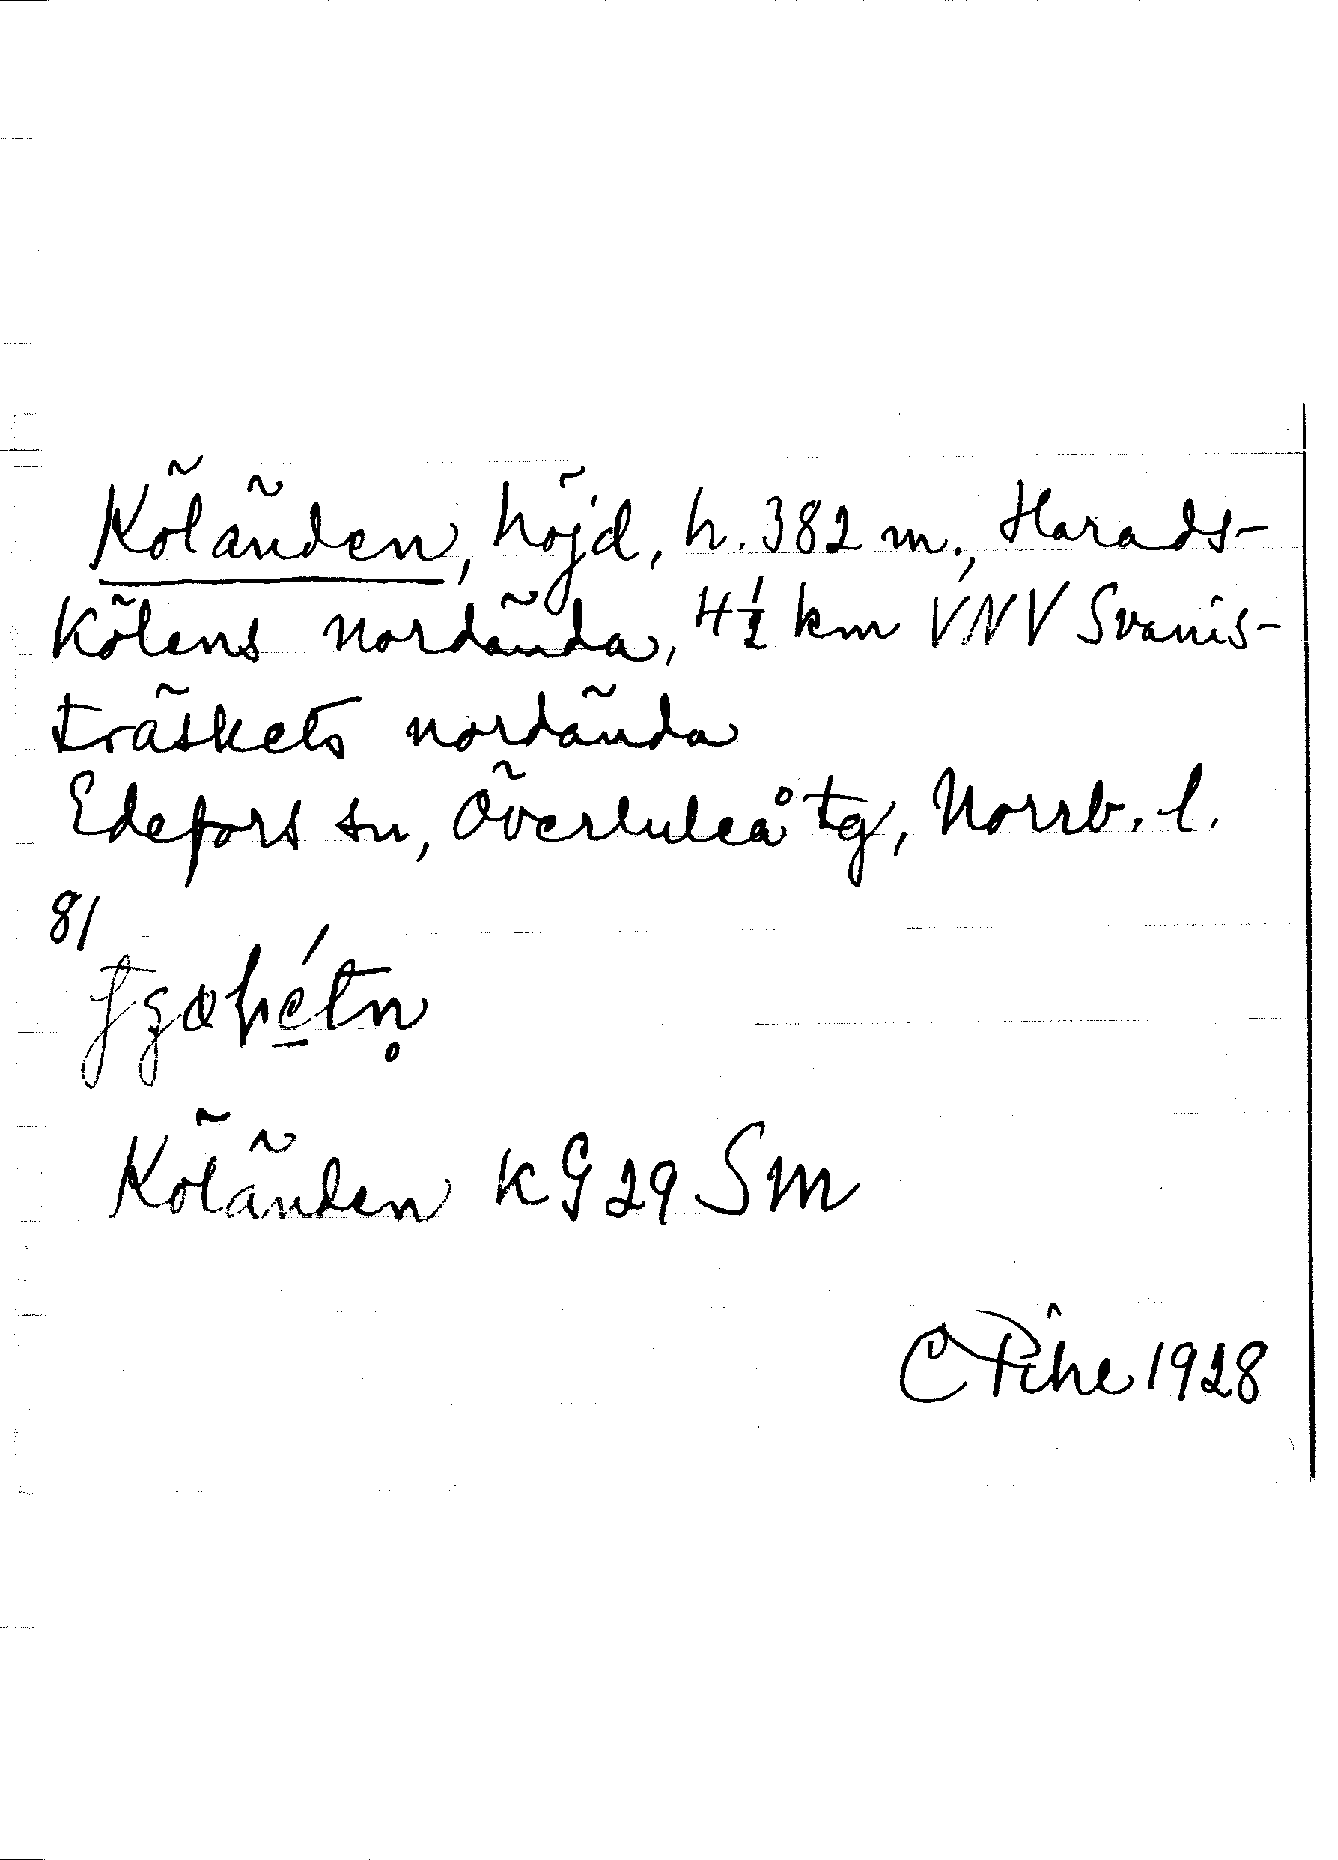 Köländen, höjd, h. 382 m., Harads-
kölens nordända, 4½ km VNV Svanis-
träskets nordända
Edefors sn, Överluleå tg, Norrb. l.
81
Köländen KG 29 Sm
C Pihl 1928